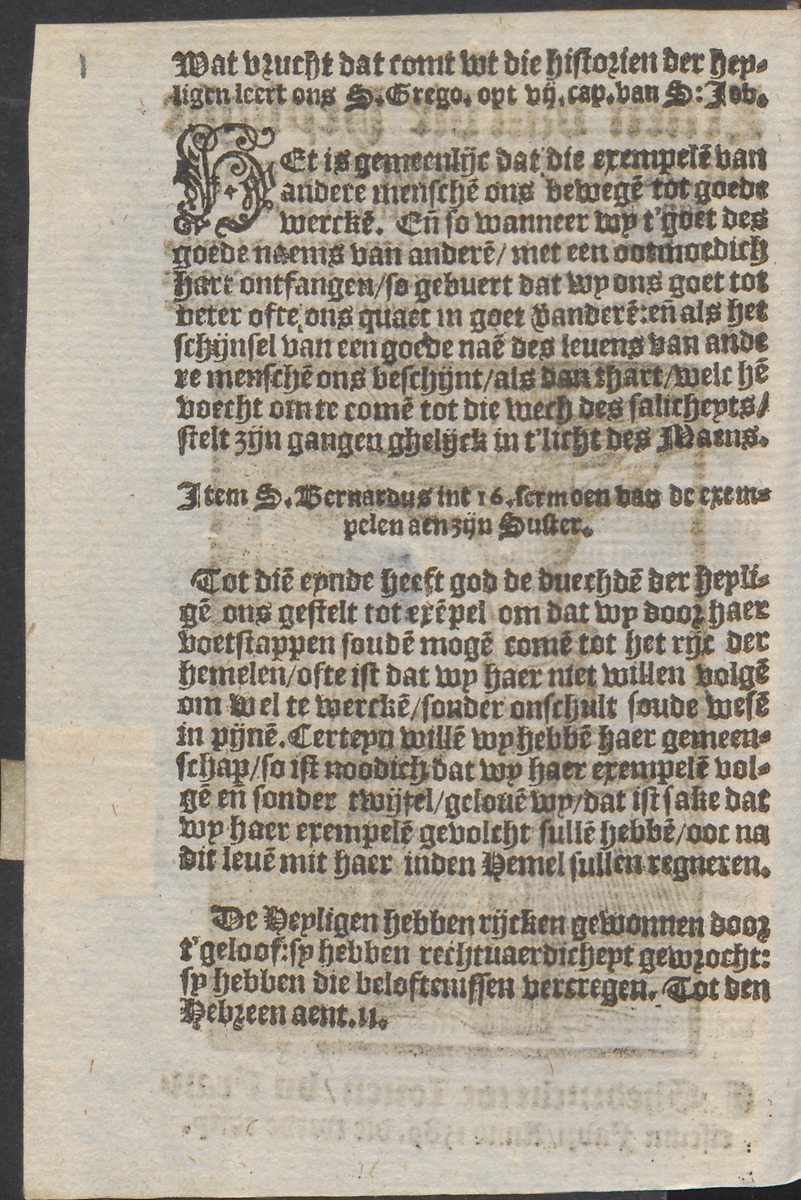 Wat vrucht dat comt wt die historien der hey-
ligen leert ons S. Grego. opt vij. cap. van S: Job.
HEt is gemeenlijc dat die exempelē van
andere menschē ons bewegē tot goede
werckē. Eñ so wanneer wy t'goet des
goede naems van anderē/ met een ootmoedich
hart ontfangen/so gebuert dat wy ons goet tot
beter ofte ons quaet in goet vanderē: eñ als het
schijnsel van een goede naē des leuens van ande
re menschē ons beschijnt/als dan thart/welc hē
voecht om te comē tot die wech des salicheyts/
stelt zijn gangen ghelijck in t'licht des Maens.
Item S. Bernardus int 16. sermoen van de exem-
pelen aen zijn Suster.
Tot diē eynde heeft god de duechdē der heyli-
gē ons gestelt tot exēpel om dat wy door haer
voetstappen soudē mogē comē tot het rijc der
hemelen/ofte ist dat wy haer niet willen volgē
om wel te werckē/sonder onschult soude wesē
in pijnē. Certeyn willē wy hebbē haer gemeen-
schap/so ist noodich dat wy haer exempelē vol-
gē eñ sonder twijfel/gelouē wy/dat ist sake dat
wy haer exempelē gevolcht sullē hebbē/ooc na
dit leuē mit haer inden Hemel sullen regneren.
De Heyligen hebben rijcken gewonnen door
t'geloof: sy hebben rechtuaerdicheyt gewrocht:
sy hebben die beloftenissen vercregen. Tot den
Hebreen aent. 11.